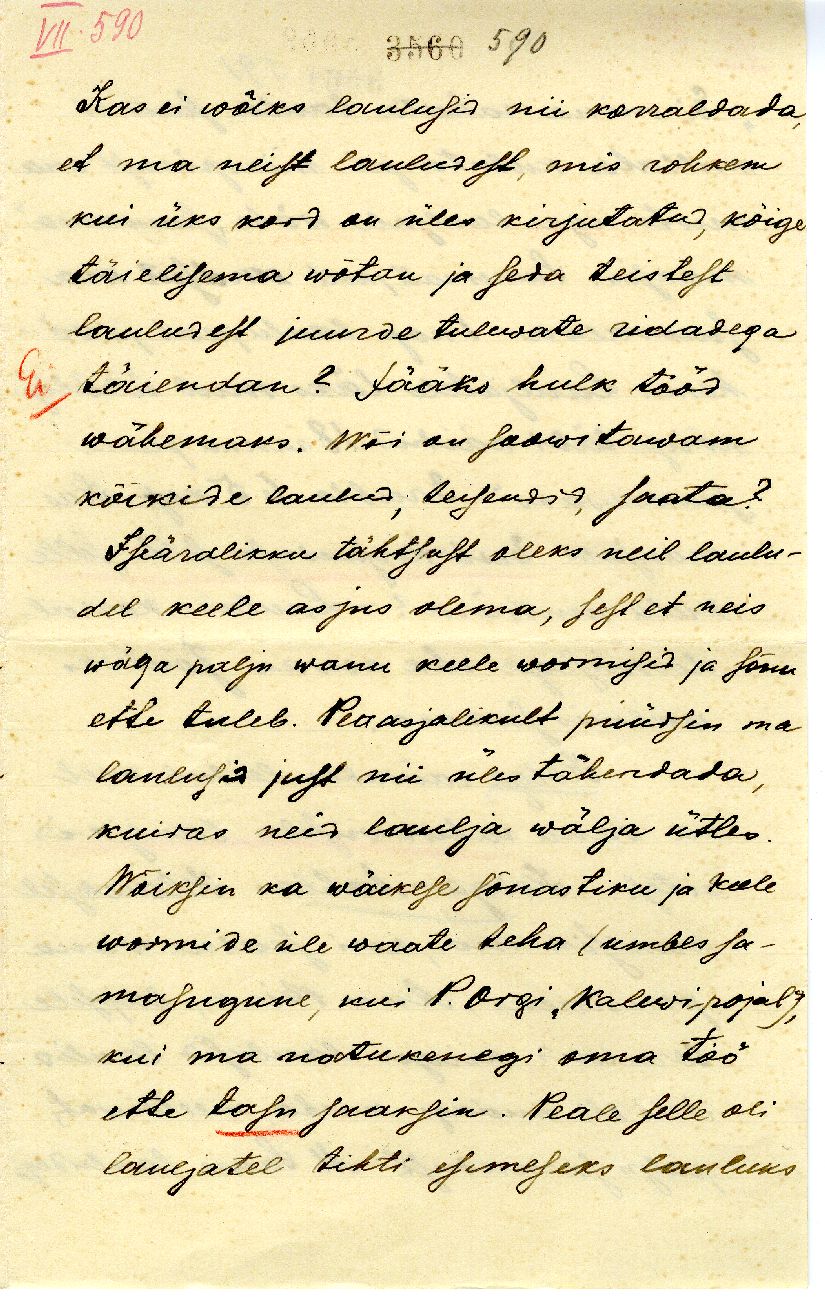 VII. 590
3560 590
Kas ei wõiks laulusid nii korraldada,
et ma neist lauludest, mis rohkem
kui üks kord on üles kirjutatud, kõige
täielisema wõtan ja seda teistest
lauludest juurde tulewate ridadega
Ei täiendan? Jääks hulk tööd
wähemaks. Wõi on soowitawam
kõikide laulud, teisendid, saata?
Iseäralikku tähtsust oleks neil laulu-
del keele asjus olema, sest et neis
wäga palju wanu keele wormisid ja sõnu
ette tuleb. Peaasjalikult püüdsin ma
laulusid just nii üles tähendada,
kuidas neid laulja wälja ütles.
Wõiksin ka wäikese sõnastiku ja keele
wormide üle waate teha (umbes sa-
masugune, kui P. Orgi „Kalewipojal"),
kui ma natukenegi oma töö
ette tasu saaksin. Peale selle oli
lauljatel tihti esimeseks lauluks